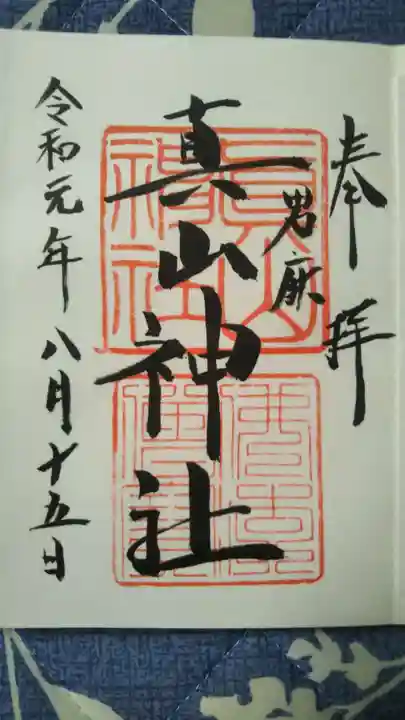 奉拝
男鹿
真山神社
令和元年八月十五日
真山神社